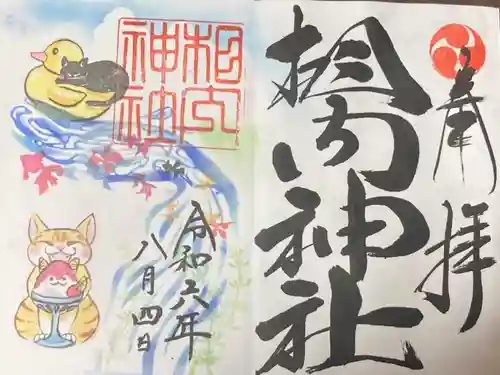 奉拝
相内神社
相内
神社
令和六年
八月四日